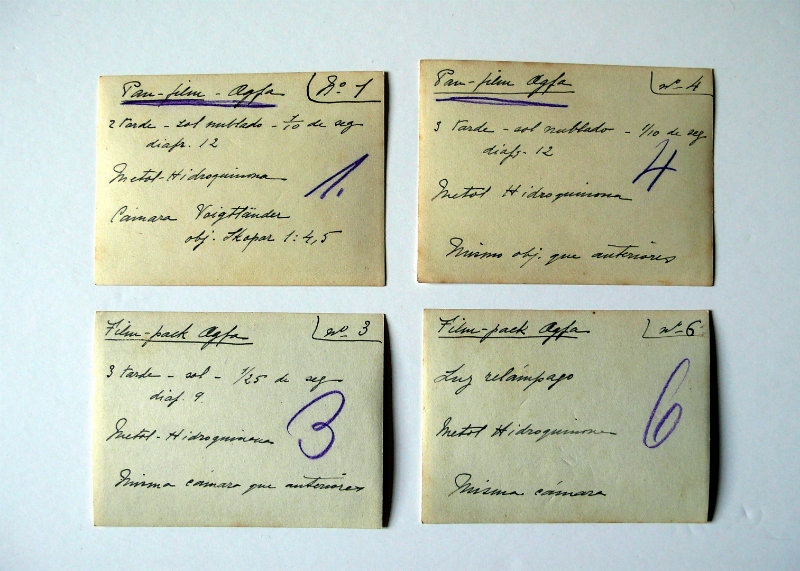 Pan-film - Agfa
Nº 1
2 tarde - sol nublado - 1/10 de seg
diafr. 12
Metol-Hidroquinona
1.
Cámara Voigtländer
obj. Skopar 1:4,5
Pan-film Agfa
nº 4
3 tarde - sol nublado - 1/10 de seg
diafr. 12
4
Metol Hidroquinona
Mismo obj. que anteriores
Film-pack Agfa
nº 3
3 tarde - sol - 1/25 de seg
diaf. 9
3
Metol-Hidroquinona
Misma cámara que anteriores
Film-pack Agfa
nº 6
Luz relámpago
6
Metol Hidroquinona
Misma cámara